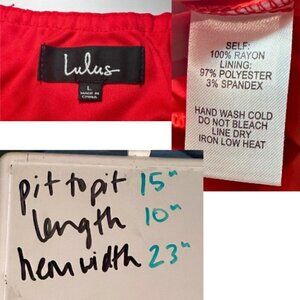 Lulus
L
MADE IN
CHINA
SELF:
100% RAYON
LINING:
97% POLYESTER
3% SPANDEX
HAND WASH COLD
DO NOT BLEACH
LINE DRY
IRON LOW HEAT
pit to pit 15"
length 10"
hem width 23"